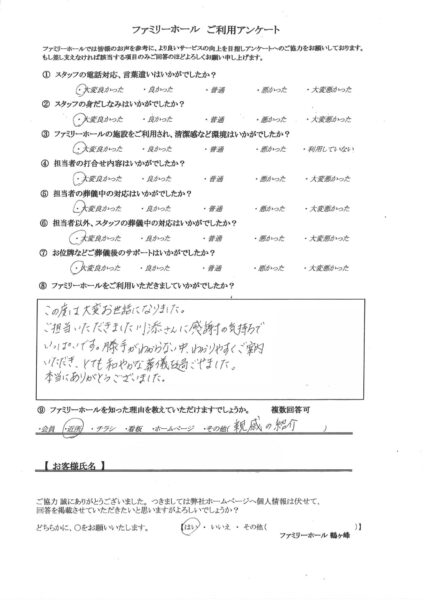 ファミリーホール ご利用アンケート
ファミリーホールでは皆様のお声を参考に、より良いサービスの向上を目指しアンケートへのご協力をお願いしております。
もし差し支えなければ該当する項目のみご回答のほどよろしくお願い申し上げます。
① スタッフの電話対応、言葉遣いはいかがでしたか？
・大変良かった ・良かった ・普通 ・悪かった ・大変悪かった
② スタッフの身だしなみはいかがでしたか？
・大変良かった ・良かった ・普通 ・悪かった ・大変悪かった
③ ファミリーホールの施設をご利用され、清潔感など環境はいかがでしたか？
・大変良かった ・良かった ・普通 ・悪かった ・利用していない
④ 担当者の打合せ内容はいかがでしたか？
・大変良かった ・良かった ・普通 ・悪かった ・大変悪かった
⑤ 担当者の葬儀中の対応はいかがでしたか？
・大変良かった ・良かった ・普通 ・悪かった ・大変悪かった
⑥ 担当者以外、スタッフの葬儀中の対応はいかがでしたか？
・大変良かった ・良かった ・普通 ・悪かった ・大変悪かった
⑦ お位牌などご葬儀後のサポートはいかがでしたか？
・大変良かった ・良かった ・普通 ・悪かった ・大変悪かった
⑧ ファミリーホールをご利用いただきましていかがでしたか？
この度は大変お世話になりました。
ご担当いただきました川添さんに感謝の気持ちで
いっぱいです。勝手がわからない中、わかりやすくご案内
いただき、とても和やかな葬儀を過ごせました。
本当にありがとうございました。
⑨ ファミリーホールを知った理由を教えていただけますでしょうか。 複数回答可
・会員 ・近所 ・チラシ ・看板 ・ホームページ ・その他( 親戚の紹介 )
【 お客様氏名 】
ご協力 誠にありがとうございました。つきましては弊社ホームページへ個人情報は伏せて、
回答を掲載させていただきたいと思いますがよろしいでしょうか？
どちらかに、○をお願いします。 【はい ・ いいえ ・ その他( )】
ファミリーホール 鶴ヶ峰